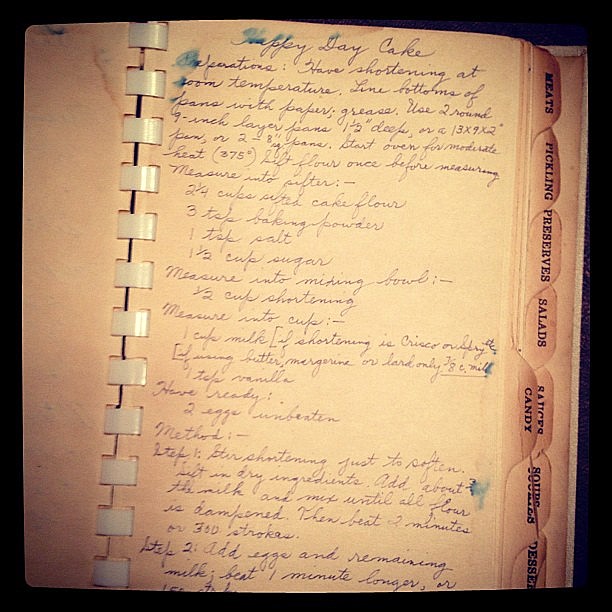 Happy Day Cake
Preparations: Have shortening at
room temperature. Line bottoms of
pans with paper; grease. Use 2 round
9-inch layer pans 1½" deep, or a 13x9x2"
pan, or 2 - 8" sq. pans. Start oven for moderate
heat (375°) Sift flour once before measuring
Measure into sifter:-
2¼ cups sifted cake flour
3 tsp baking powder
1 tsp salt
1½ cup sugar
Measure into mixing bowl:-
½ cup shortening
Measure into cup:-
1 cup milk [if shortening is Crisco or Spry etc.
[if using butter, margerine or lard only ⅞ c. milk
1 tsp vanilla
Have ready:
2 eggs unbeaten
Method:-
Step 1: Stir shortening just to soften.
Sift in dry ingredients. Add about ¾
the milk and mix until all flour
is dampened. Then beat 2 minutes
or 300 strokes.
Step 2: Add eggs and remaining
milk; beat 1 minute longer, or
150
MEATS
PICKLING
PRESERVES
SALADS
SAUCES
CANDY
SOUPS
DESSER